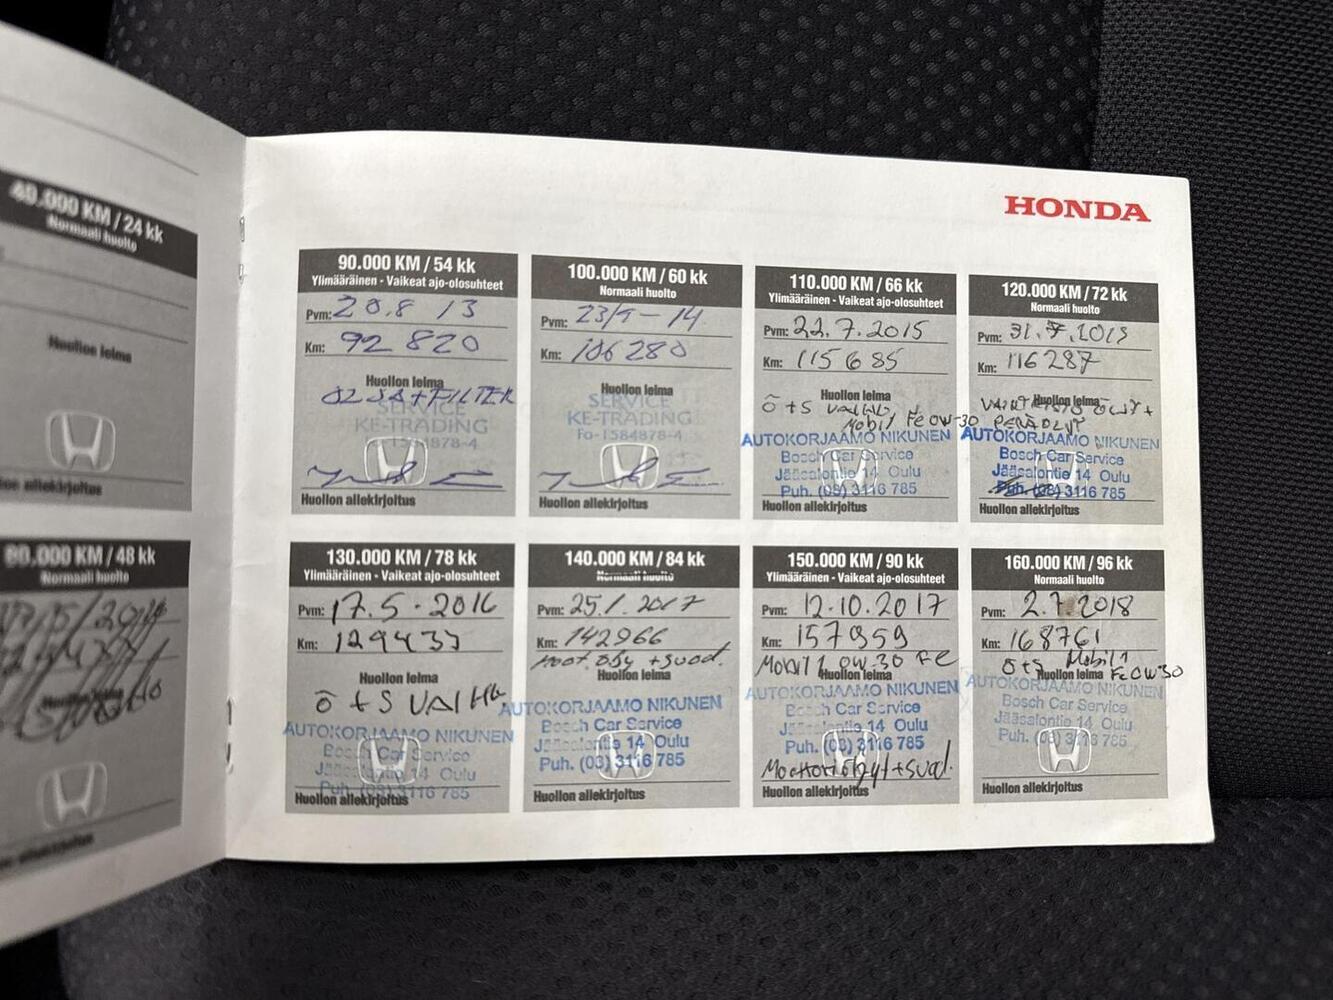 40.000 KM / 24 kk
Normaali huolto
Huollon leima
HONDA
90.000 KM / 54 kk
Ylimääräinen - Vaikeat ajo-olosuhteet
Pvm: 20.8 / 13
Km: 92 820
Huollon leima
+ FILTER
SERVICE
KE-TRADING
Huollon allekirjoitus
100.000 KM / 60 kk
Normaali huolto
Pvm:
Km: 106 280
Huollon leima
SERVICE
KE-TRADING
Fo-1584878-4
Huollon allekirjoitus
110.000 KM / 66 kk
Ylimääräinen - Vaikeat ajo-olosuhteet
Pvm: 22.7.2015
Km: 115685
Huollon leima
ö+S
Mobil 1 Fe 0W-30
AUTOKORJAAMO NIKUNEN
Bosch Car Service
Jääsalontie 14 Oulu
Puh. (08) 3116 785
Huollon allekirjoitus
120.000 KM / 72 kk
Normaali huolto
Pvm:
Km: 116287
Huollon leima
AUTOKORJAAMO NIKUNEN
Bosch Car Service
Jääsalontie 14 Oulu
Puh. (08) 3116 785
Huollon allekirjoitus
80.000 KM / 48 kk
Normaali huolto
130.000 KM / 78 kk
Ylimääräinen - Vaikeat ajo-olosuhteet
Pvm: 17.5.2016
Km: 129433
Huollon leima
ö + S
AUTOKORJAAMO NIKUNEN
Bosch Car Service
Jääsalontie 14 Oulu
Puh. (08) 3116 785
Huollon allekirjoitus
140.000 KM / 84 kk
Normaali huolto
Pvm: 25.1.2017
Km: 142966
Moot. öljy + suod.
Huollon leima
AUTOKORJAAMO NIKUNEN
Bosch Car Service
Jääsalontie 14 Oulu
Puh. (08) 3116 785
Huollon allekirjoitus
150.000 KM / 90 kk
Ylimääräinen - Vaikeat ajo-olosuhteet
Pvm: 12.10.2017
Km: 157959
Mobil 1 0W-30 FE
Huollon leima
AUTOKORJAAMO NIKUNEN
Bosch Car Service
Jääsalontie 14 Oulu
Puh. (08) 3116 785
Moottoriöljyt + suod.
Huollon allekirjoitus
160.000 KM / 96 kk
Normaali huolto
Pvm: 2.7.2018
Km: 168761
ö+S Mobil 1
Huollon leima Fe 0W30
AUTOKORJAAMO NIKUNEN
Bosch Car Service
Jääsalontie 14 Oulu
Puh. (08) 3116 785
Huollon allekirjoitus